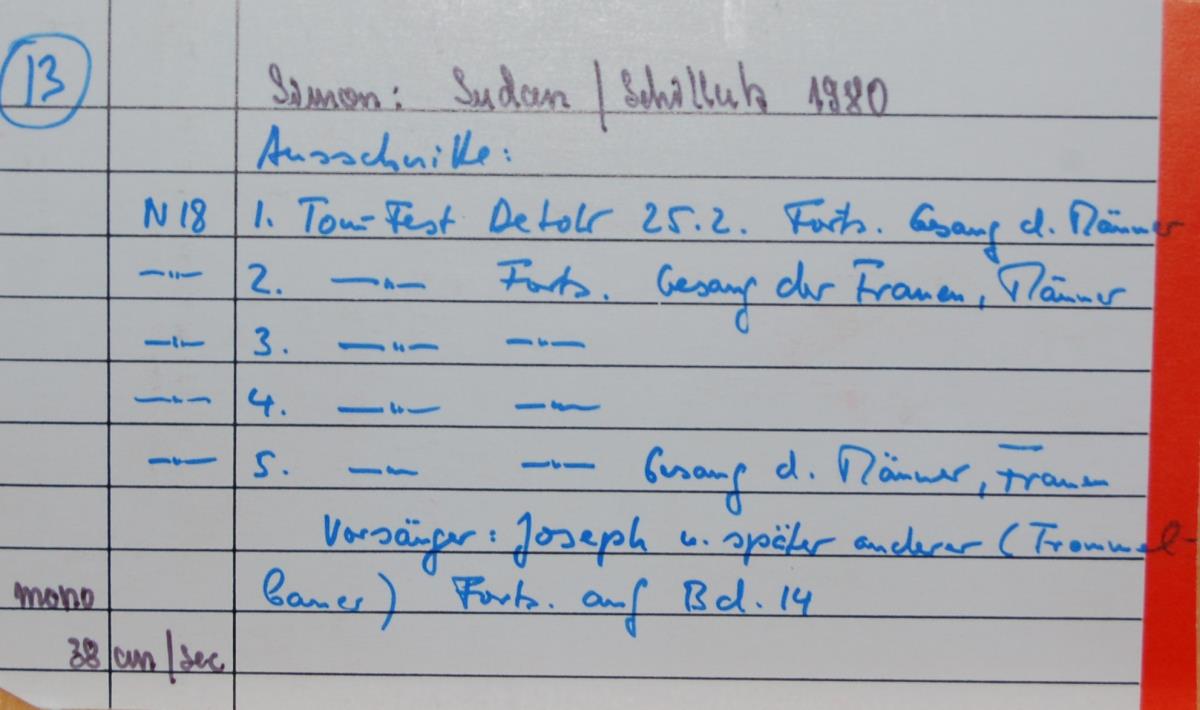 13 Simon: Sudan / Schilluk 1980
Ausschnitte:
N 18 1. Tom-Fest Detolr 25.2. Forts. Gesang d. Männer
—"— 2. —"— Forts. Gesang der Frauen, Männer
—"— 3. —"— —"—
—"— 4. —"— —"—
—"— 5. —"— —"— Gesang d. Männer, Frauen
Vorsänger: Joseph u. später anderer (Trommel-
mono bauer) Forts. auf Bd. 14
38 cm/sec